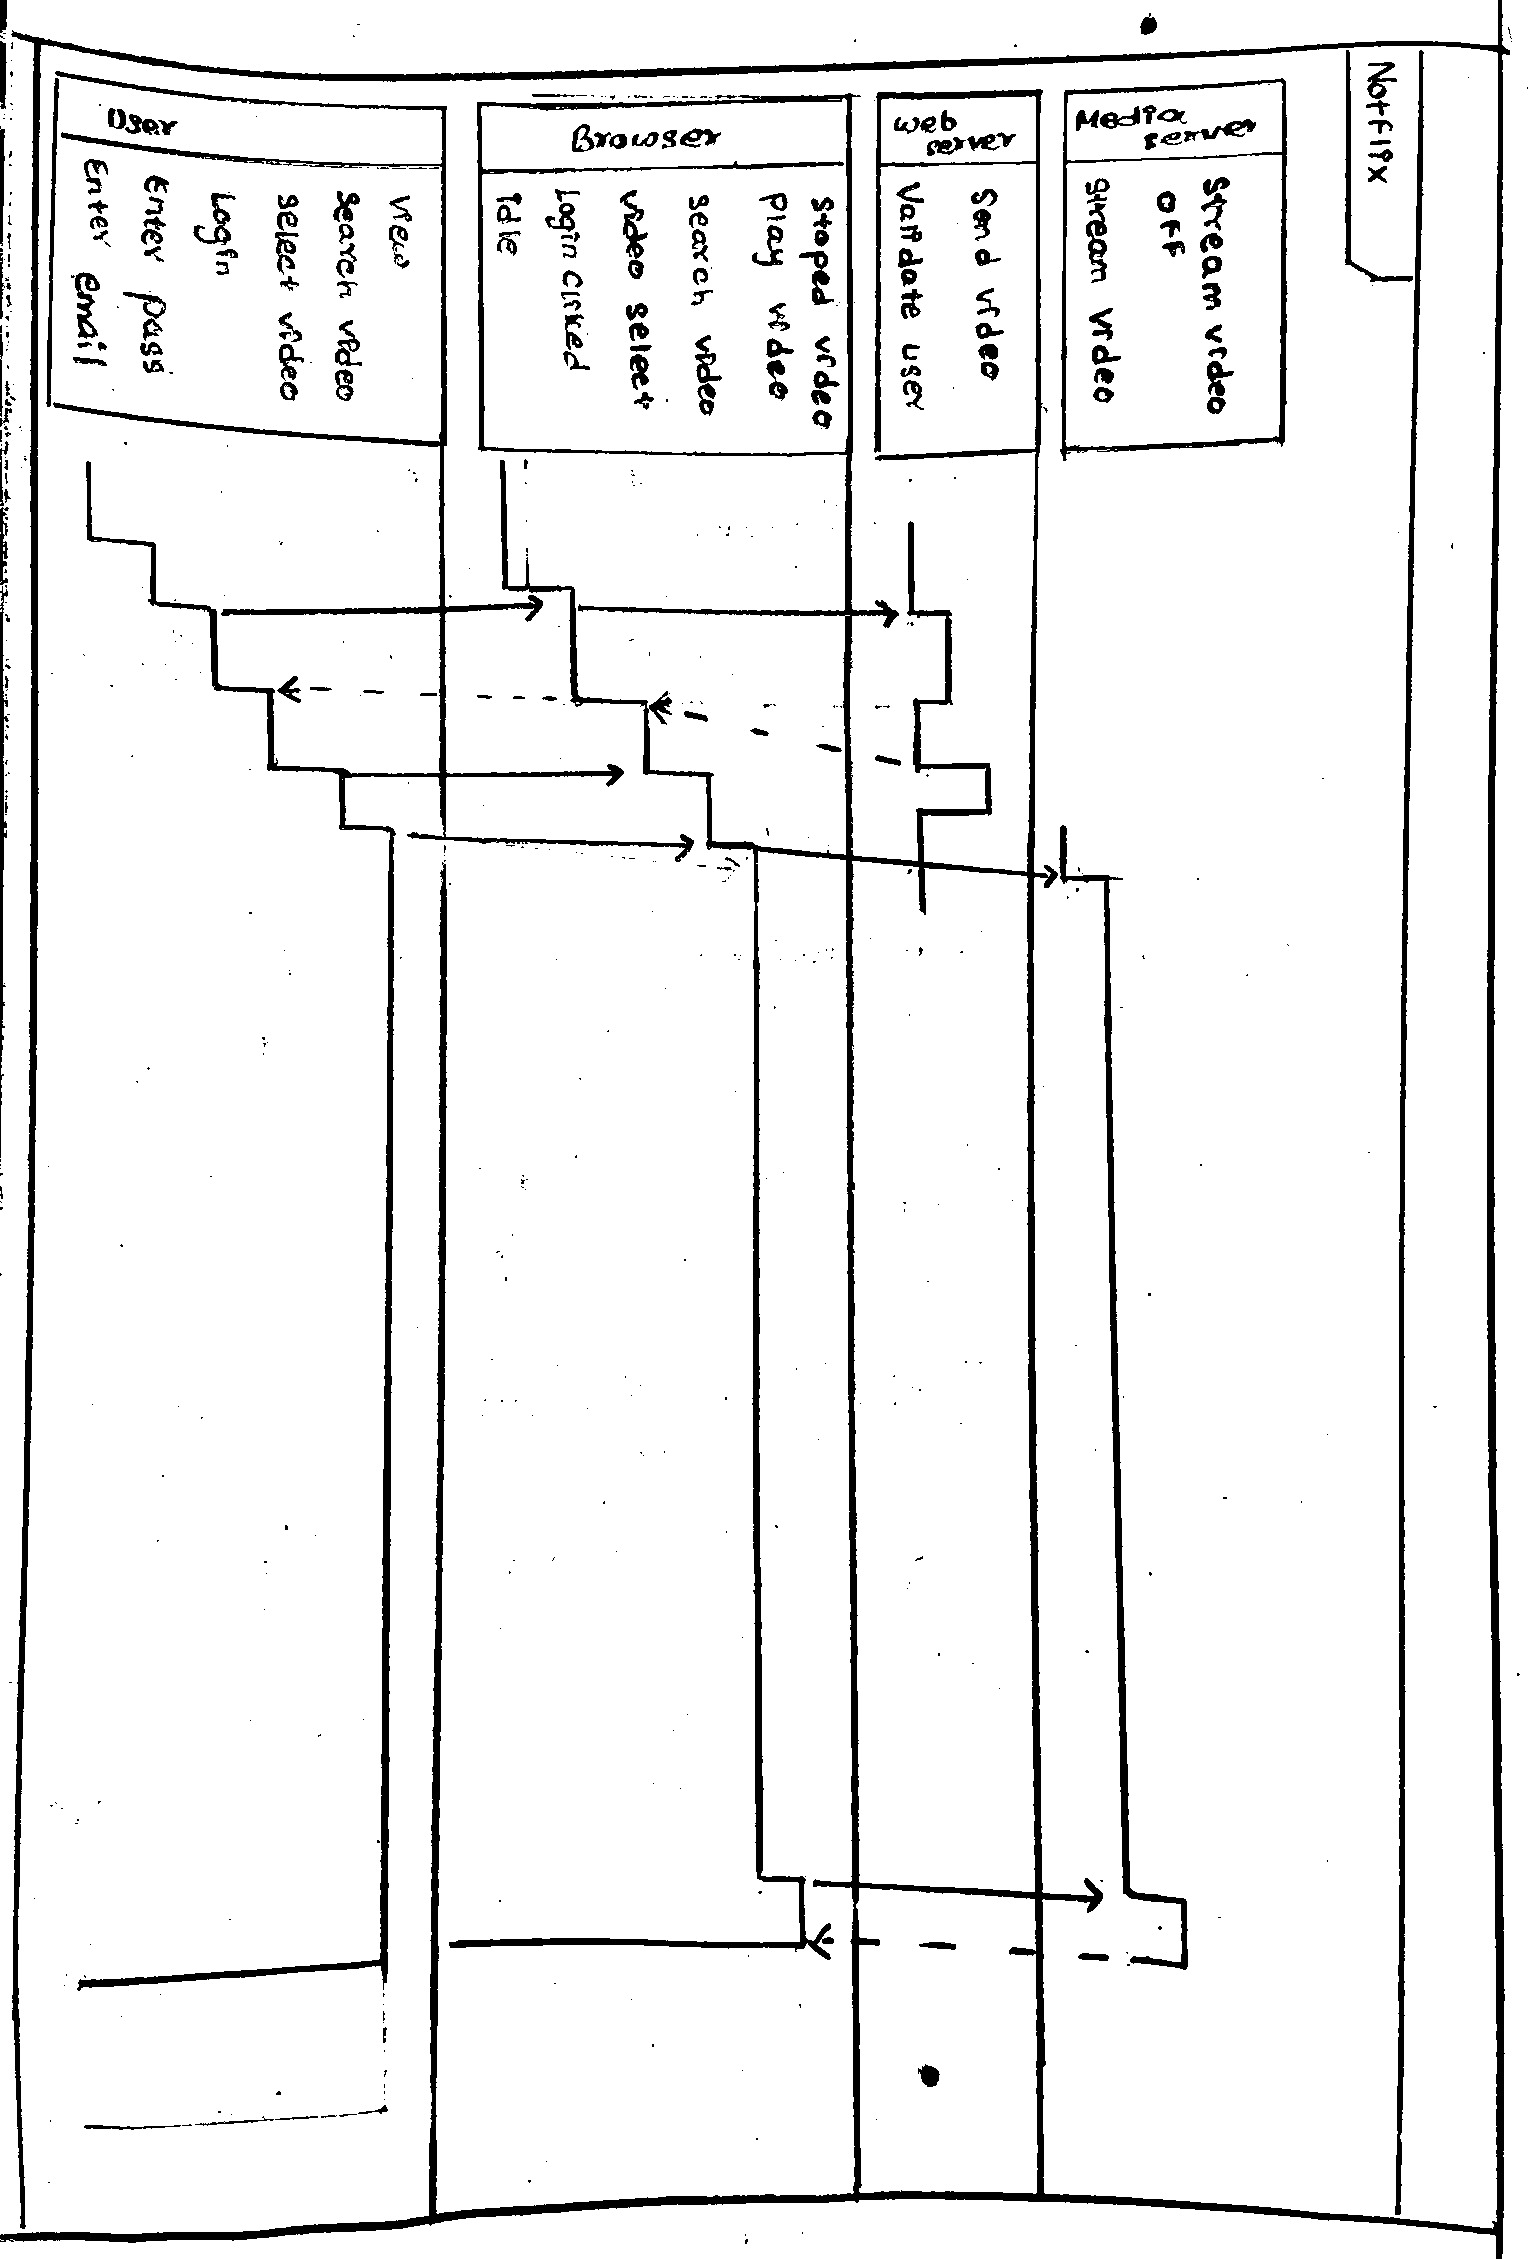 Notflix
Media
server
Stream video
off
Stream video
Web
server
Send video
Validate user
Browser
Stoped video
Play video
Search video
Video select
Login Cliked
idle
User
View
Search video
Select video
Login
Enter pass
Enter email